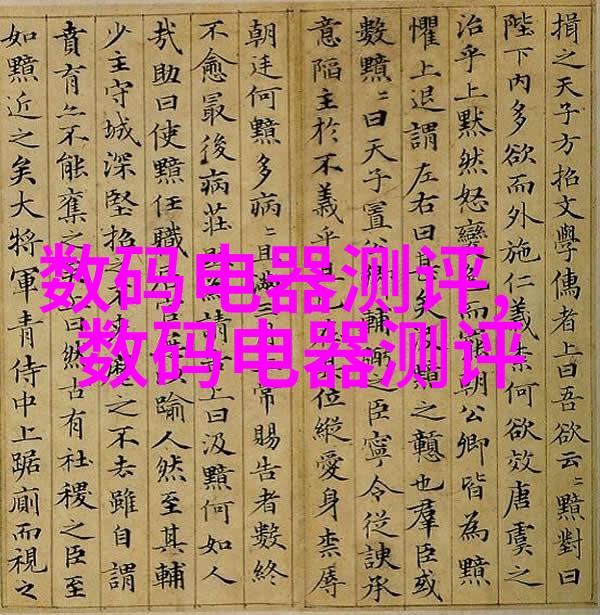 揖之天子方招文學儒者上曰吾欲云〻黯對曰
陛下內多欲而外施仁義柰何欲效唐虞之
治乎上黙然怒變色而罷朝公卿皆為黯
懼上退謂左右曰甚矣之戇也羣臣或
數黯〻曰天子置公輔弼之臣寧令從諛承
意陷主於不義乎位縱愛身柰辱
朝廷何黯多病〻且滿三常賜告者數終
不愈最後病莊請上曰汲黯何如人
哉助曰使黯任職居官踰人然至其輔
少主守城深堅招之不麾之不去雖自謂
賁育亦不能奪之曰然古有社稷之臣至
如黯近之矣大將軍青侍中上踞廁而視之
数码电器测评,
数码电器测评